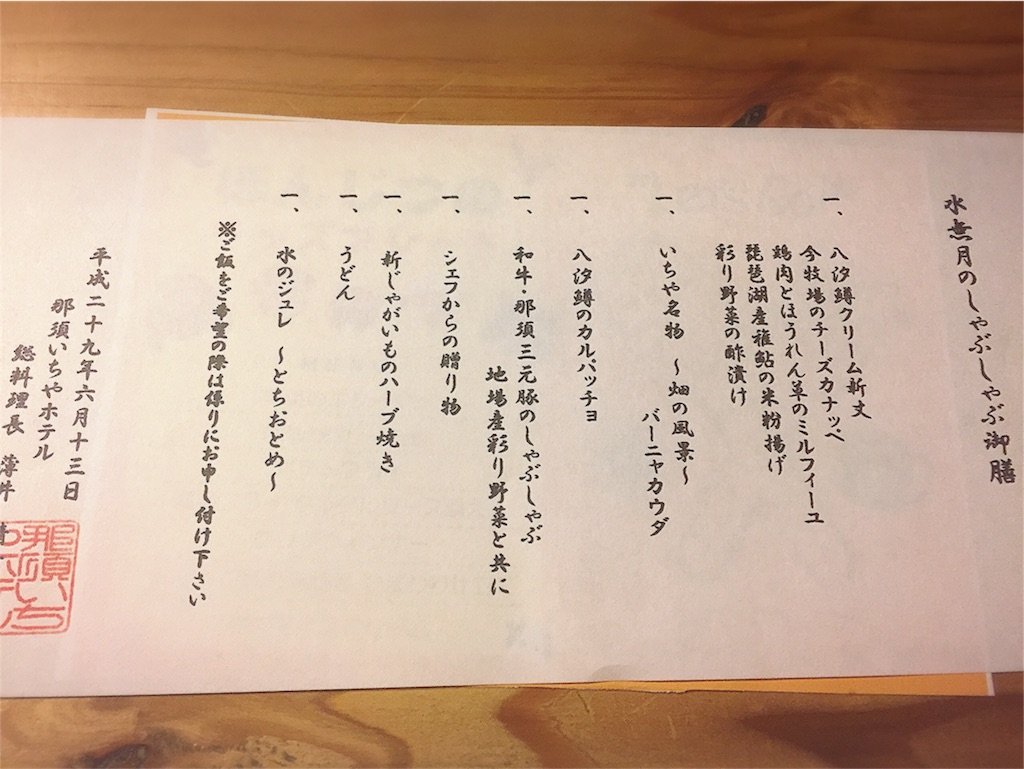 水無月のしゃぶしゃぶ御膳
一、八汐鱒クリーム新丈
今牧場のチーズカナッペ
鶏肉とほうれん草のミルフィーユ
琵琶湖産稚鮎の米粉揚げ
彩り野菜の酢漬け
一、いちや名物 〜畑の風景〜
バーニャカウダ
一、八汐鱒のカルパッチョ
一、和牛・那須三元豚のしゃぶしゃぶ
地場産彩り野菜と共に
一、シェフからの贈り物
一、新じゃがいものハーブ焼き
一、うどん
一、水のジュレ 〜とちおとめ〜
※ご飯をご希望の際は係りにお申し付け下さい
平成二十九年六月十三日
那須いちやホテル
総料理長 薄井
那須いち